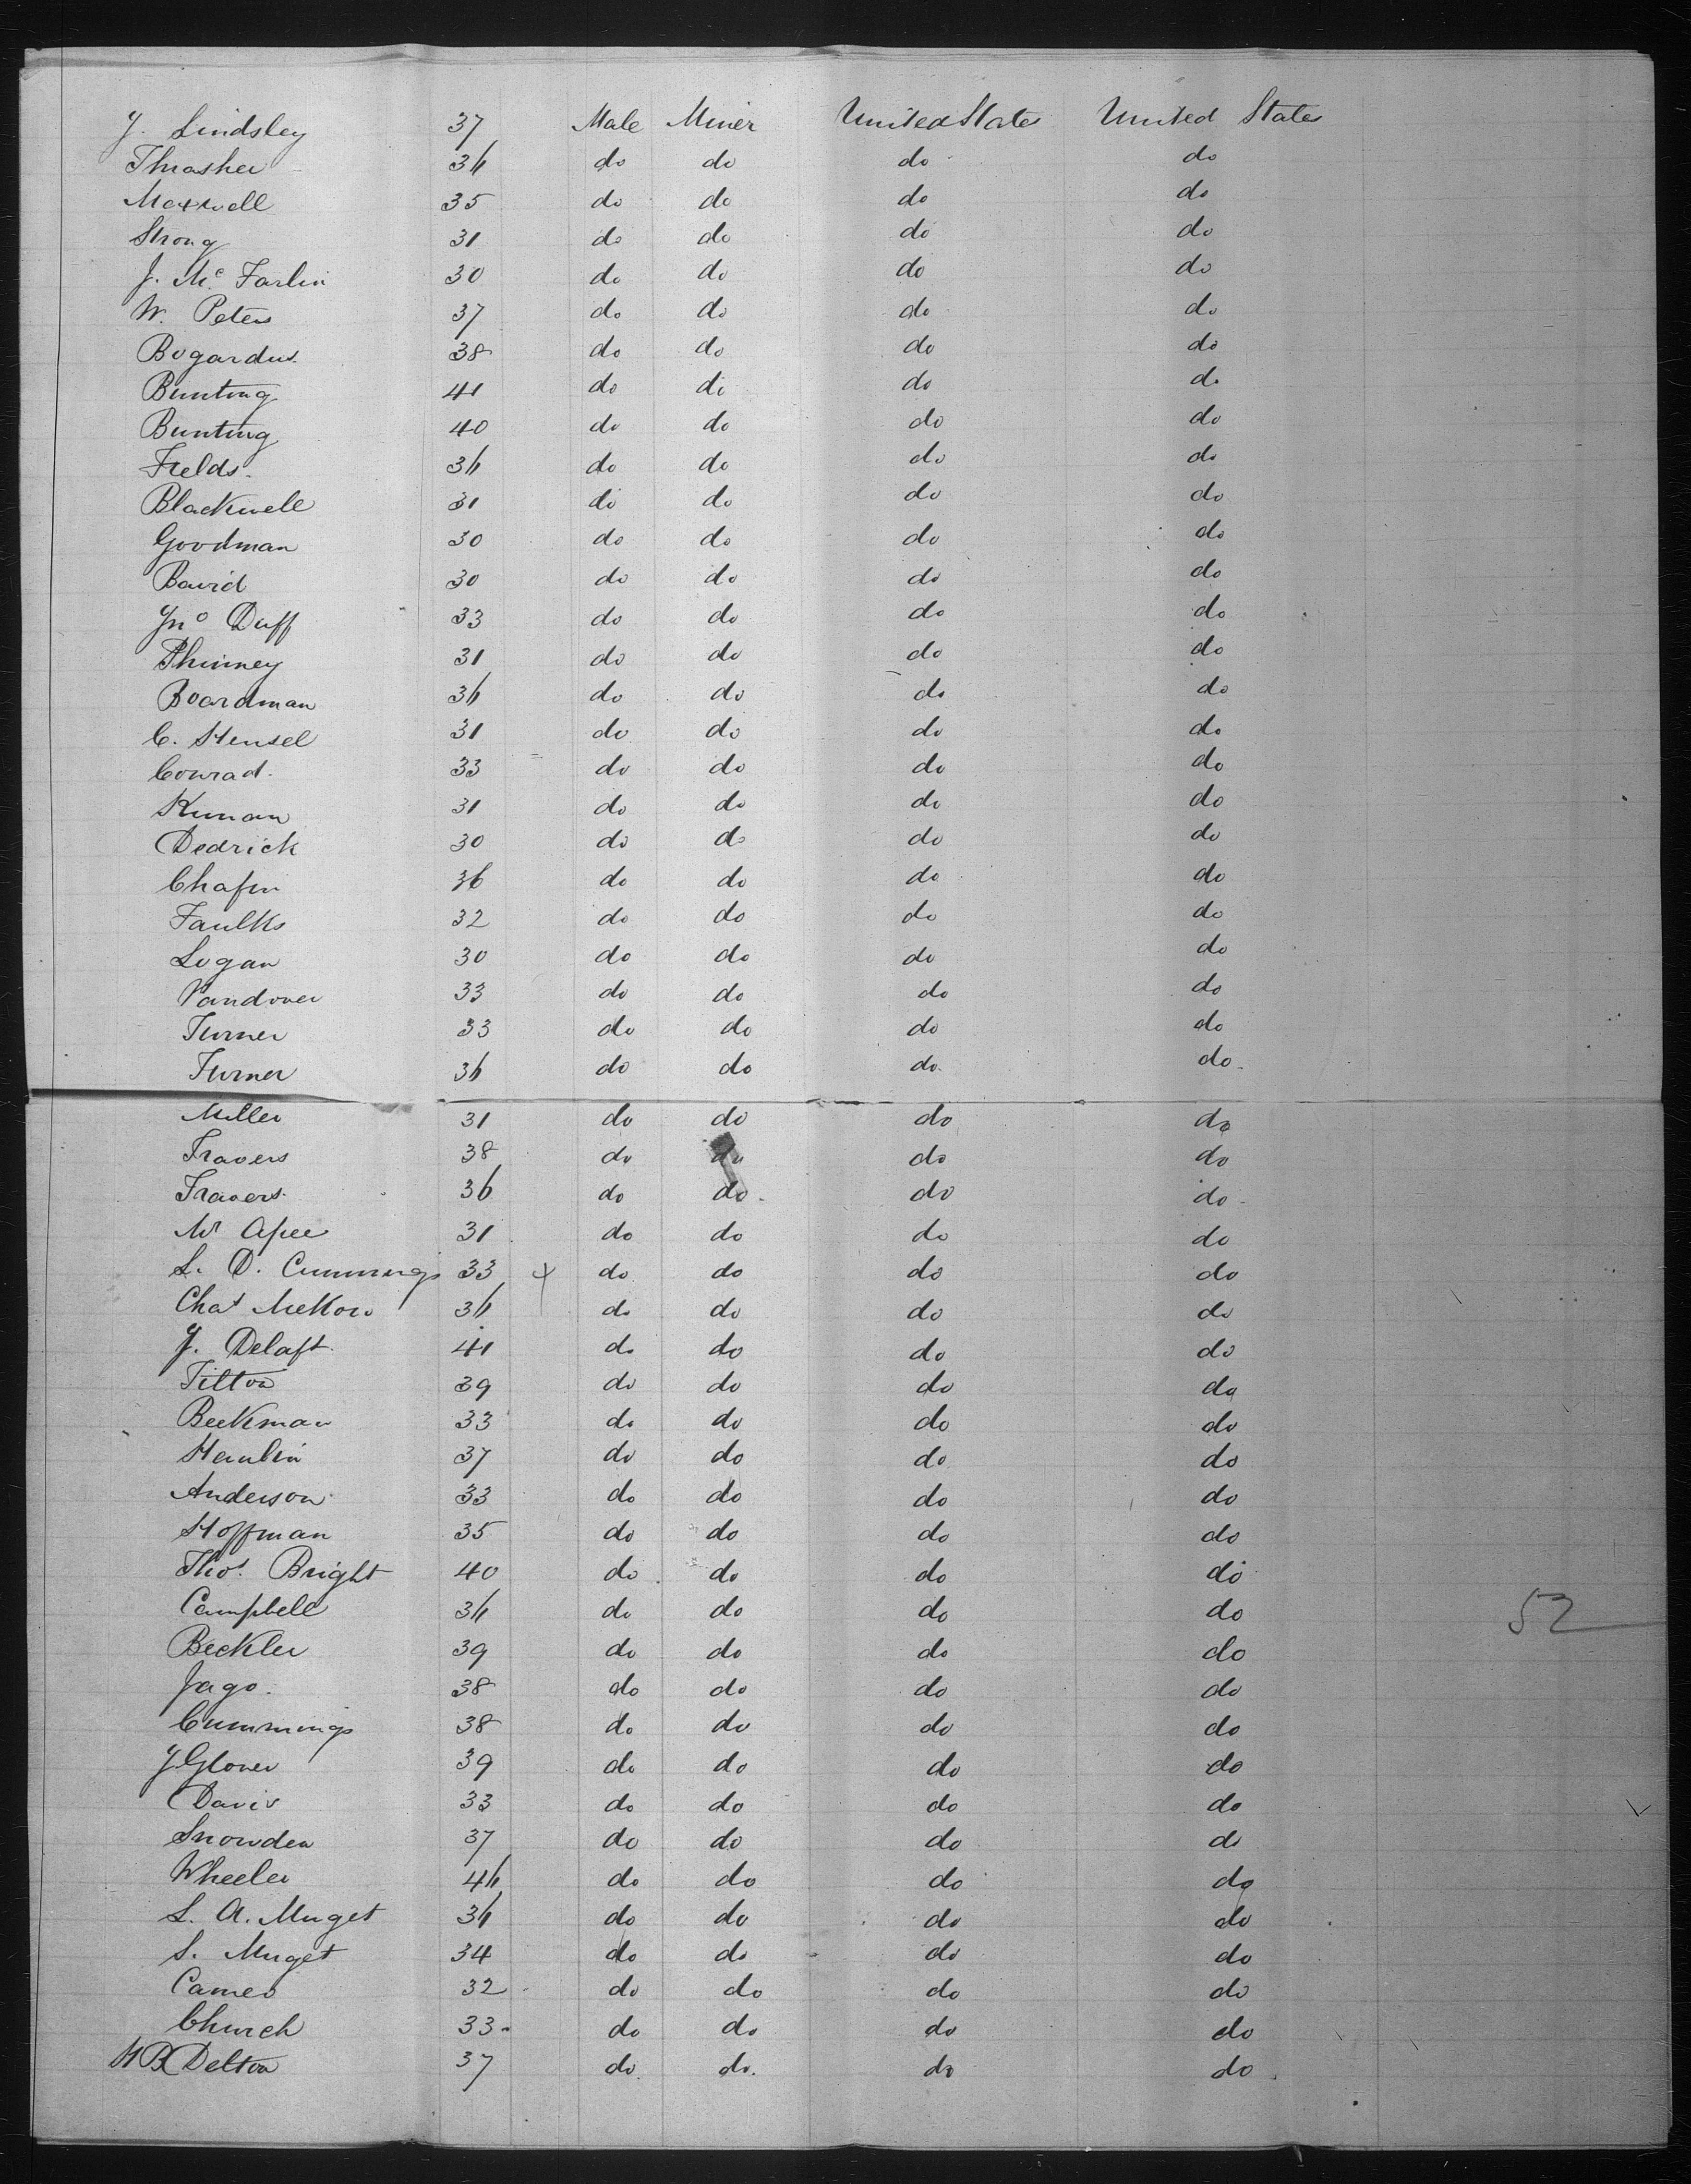 J. Lindsley 37 Male Miner United States United States
Thrasher 36 do do do do
Maxwell 35 do do do do
Strong 31 do do do do
J. Mc Farlin 30 do do do do
W. Peters 37 do do do do
Bogardus 38 do do do do
Bunting 41 do do do do
Bunting 40 do do do do
Fields 36 do do do do
Blackwell 31 do do do do
Goodman 30 do do do do
Baird 30 do do do do
Jno Duff 33 do do do do
Phinney 31 do do do do
Boardman 36 do do do do
C. Hensel 31 do do do do
Conrad 33 do do do do
31 do do do do
Dedrick 30 do do do do
Chafin 36 do do do do
Faulks 32 do do do do
Logan 30 do do do do
Vandover 33 do do do do
Turner 33 do do do do
Turner 36 do do do do
Miller 31 do do do do
Travers 38 do do do do
Travers 36 do do do do
31 do do do do
L. D. Cummings 33 do do do do
Chas 36 do do do do
J. Delaft 41 do do do do
Tilton 39 do do do do
Beekman 33 do do do do
Hamlin 37 do do do do
Anderson 33 do do do do
Hoffman 35 do do do do
Thos. Bright 40 do do do do
Campbell 36 do do do do
Beckler 39 do do do do
Jago 38 do do do do
Cummings 38 do do do do
J Glover 39 do do do do
Davis 33 do do do do
Snowden 37 do do do do
Wheeler 46 do do do do
L. A. Muget 36 do do do do
S. Muget 34 do do do do
32 do do do do
Church 33 do do do do
H B Delton 37 do do do do
52